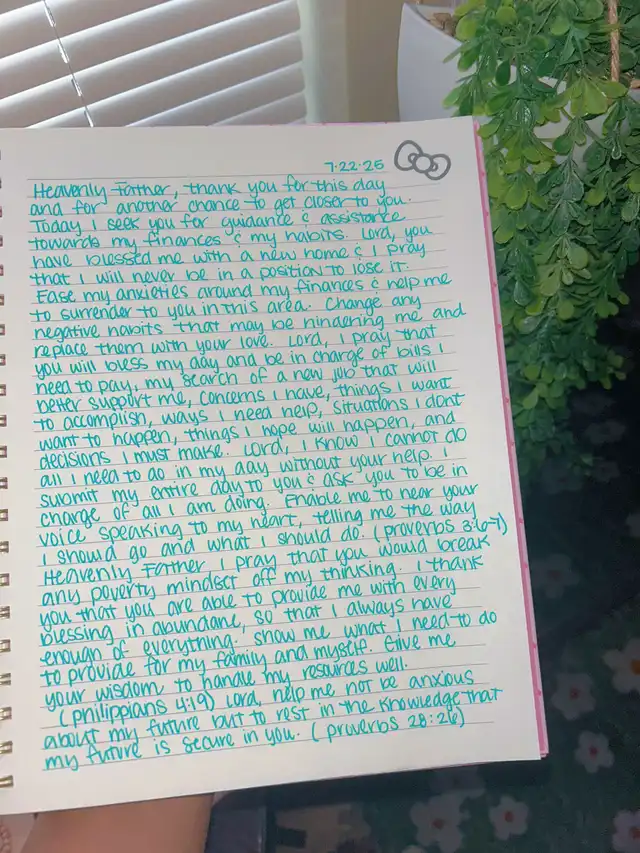 7.22.25
Heavenly Father, thank you for this day
and for another chance to get closer to you.
Today I seek you for guidance & assistance
towards my finances & my habits. Lord, you
have blessed me with a new home & I pray
that I will never be in a position to lose it.
Ease my anxieties around my finances & help me
to surrender to you in this area. Change any
negative habits that may be hindering me and
replace them with your love. Lord, I pray that
you will bless my day and be in charge of bills I
need to pay, my search of a new job that will
better support me, concerns I have, things I want
to accomplish, ways I need help, situations I dont
want to happen, things I hope will happen, and
decisions I must make. Lord, I know I cannot do
all I need to do in my day without your help. I
submit my entire day to you & ask you to be in
charge of all I am doing. Enable me to hear your
voice speaking to my heart, telling me the way
I should go and what I should do. (proverbs 3:6-7)
Heavenly Father I pray that you would break
any poverty mindset off my thinking. I thank
you that you are able to provide me with every
blessing in abundane, so that I always have
enough of everything. Show me what I need to do
to provide for my family and myself. Give me
your wisdom to handle my resources well.
(philippians 4:19) Lord, help me not be anxious
about my future but to rest in the knowledge that
my future is secure in you. (proverbs 28:26)